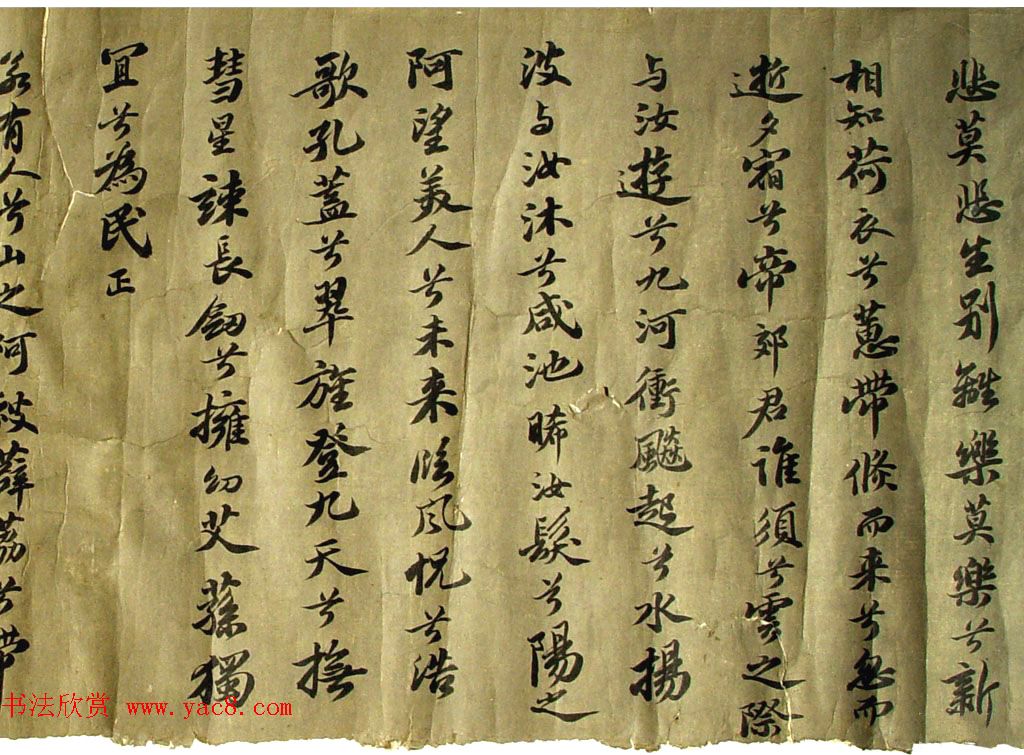 悲莫悲生别離樂莫樂兮新
相知荷衣兮蕙帶倏而来兮忽而
逝夕宿兮帝郊君誰須兮雲之際
与汝遊兮九河衝飇起兮水揚
波与汝沐兮咸池晞汝髮兮陽之
阿望美人兮未来臨風怳兮浩
歌孔蓋兮翠旌登九天兮撫
彗星竦長劔兮擁幼艾蓀獨
宜兮為民正
若有人兮山之阿被薜荔兮帶
书法欣赏 www.yac8.com